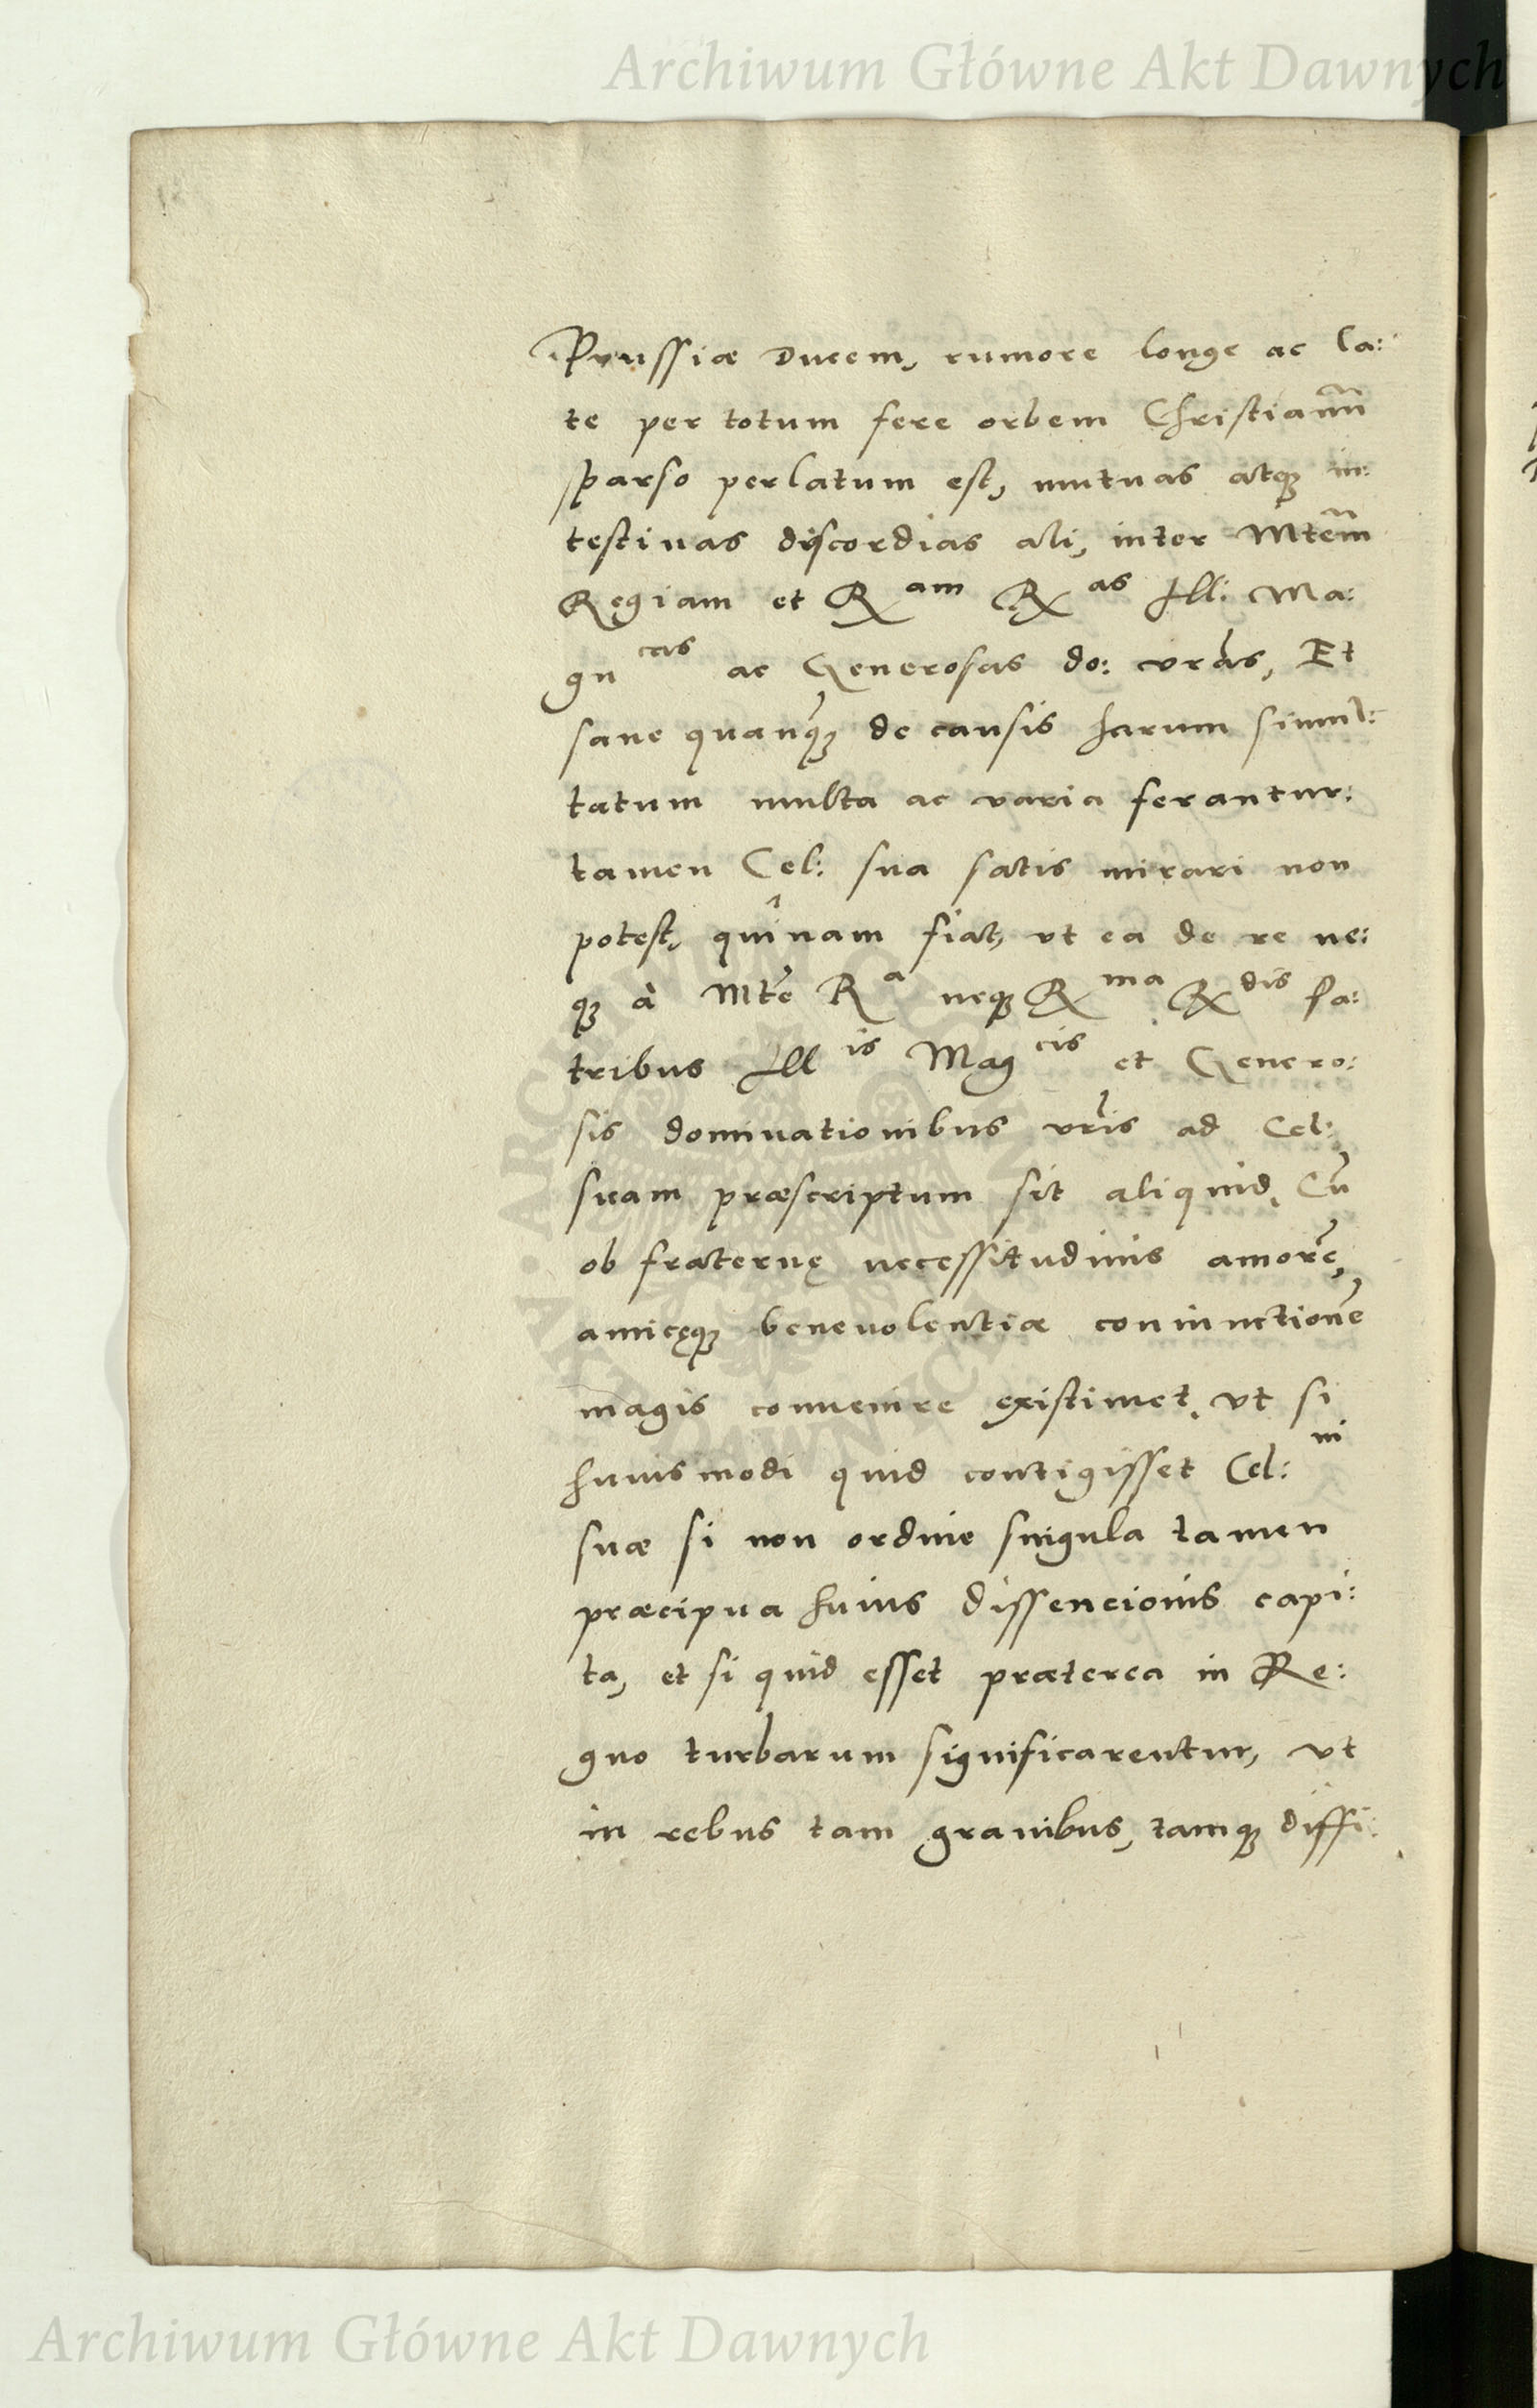 Archiwum Główne Akt Dawnych
Prussiæ Ducem, rumore longe ac la:
te per totum fere orbem Christianũ
sparso perlatum est, mutuas atq; in:
testinas discordias ali, inter Mtem̃
Regiam et R am R as Ill: Ma:
gn cas ac Generosas do: vras, Et
sane quanq; de causis harum simul:
tatum multa ac varia ferantur:
tamen Cel: sua satis mirari non
potest, quînam fiat, vt ea de re ne:
q; à Mte R a neq; R ma R dis Pa:
tribus Ill is Mag cis et Genero:
sis dominationibus vris ad Cel:
suam præscriptum sit aliquid, Cũ
ob fraternę necessitudinis amorẽ,
amicęq; beneuolentiæ coniunctionẽ
magis conuenire existimet, vt si
huiusmodi quid contigisset Cel: ni
suæ si non ordine singula tamen
præcipua huius dissencionis capi:
ta, et si quid esset præterea in Re:
gno turbarum significarentur, vt
in rebus tam grauibus, tamq; diffi:
Archiwum Główne Akt Dawnych